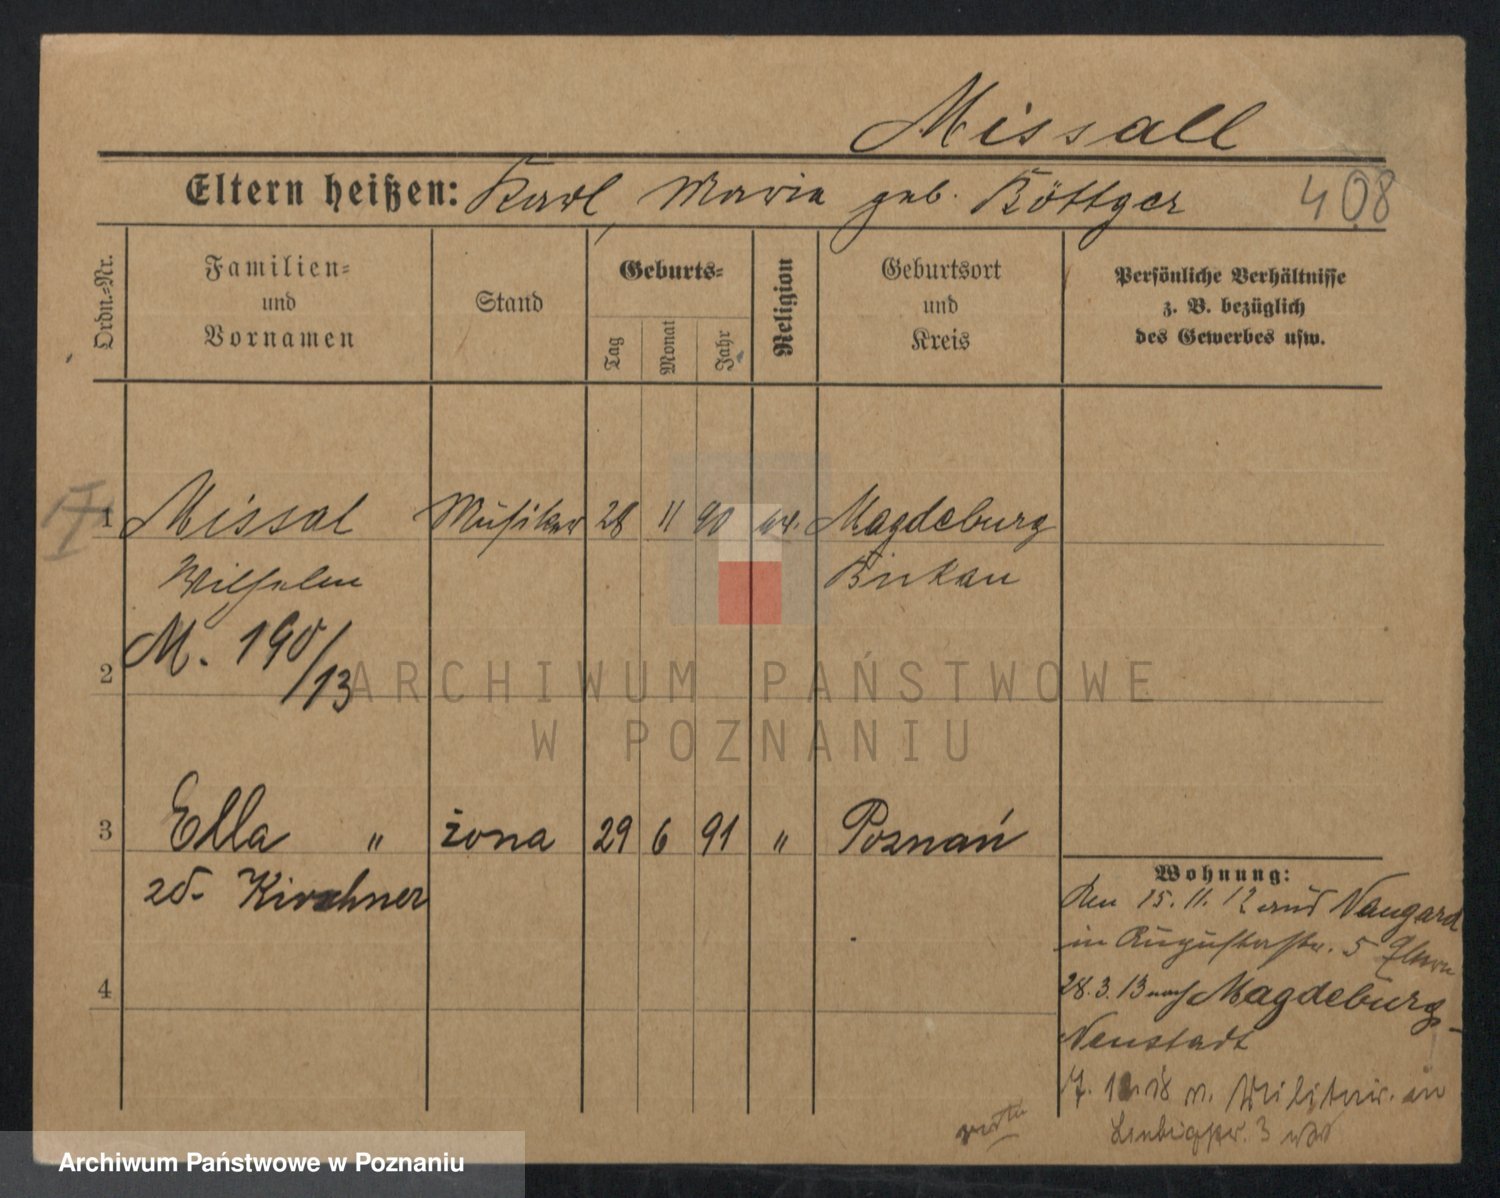 Missall
Eltern heißen: Karl, Maria geb. Böttger 408
Ordn.-Nr.
Familien-
und
Vornamen
Stand
Geburts-
Tag
Monat
Jahr
Religion
Geburtsort
und
Kreis
Persönliche Verhältnisse
z. B. bezüglich
des Gewerbes usw.
1 Missal Musiker 28 11 90 ev. Magdeburg
Wilhelm Buckau
M. 190/13
2
ARCHIWUM PAŃSTWOWE
W POZNANIU
3 Ella " żona 29 6 91 " Poznań
zd. Kirchner
4
Wohnung:
Den 15.11.12 aus Naugard
in Augustastr. 5 Eltern
28.3.13 nach Magdeburg-
Neustadt
v. Militär. in
3
Archiwum Państwowe w Poznaniu